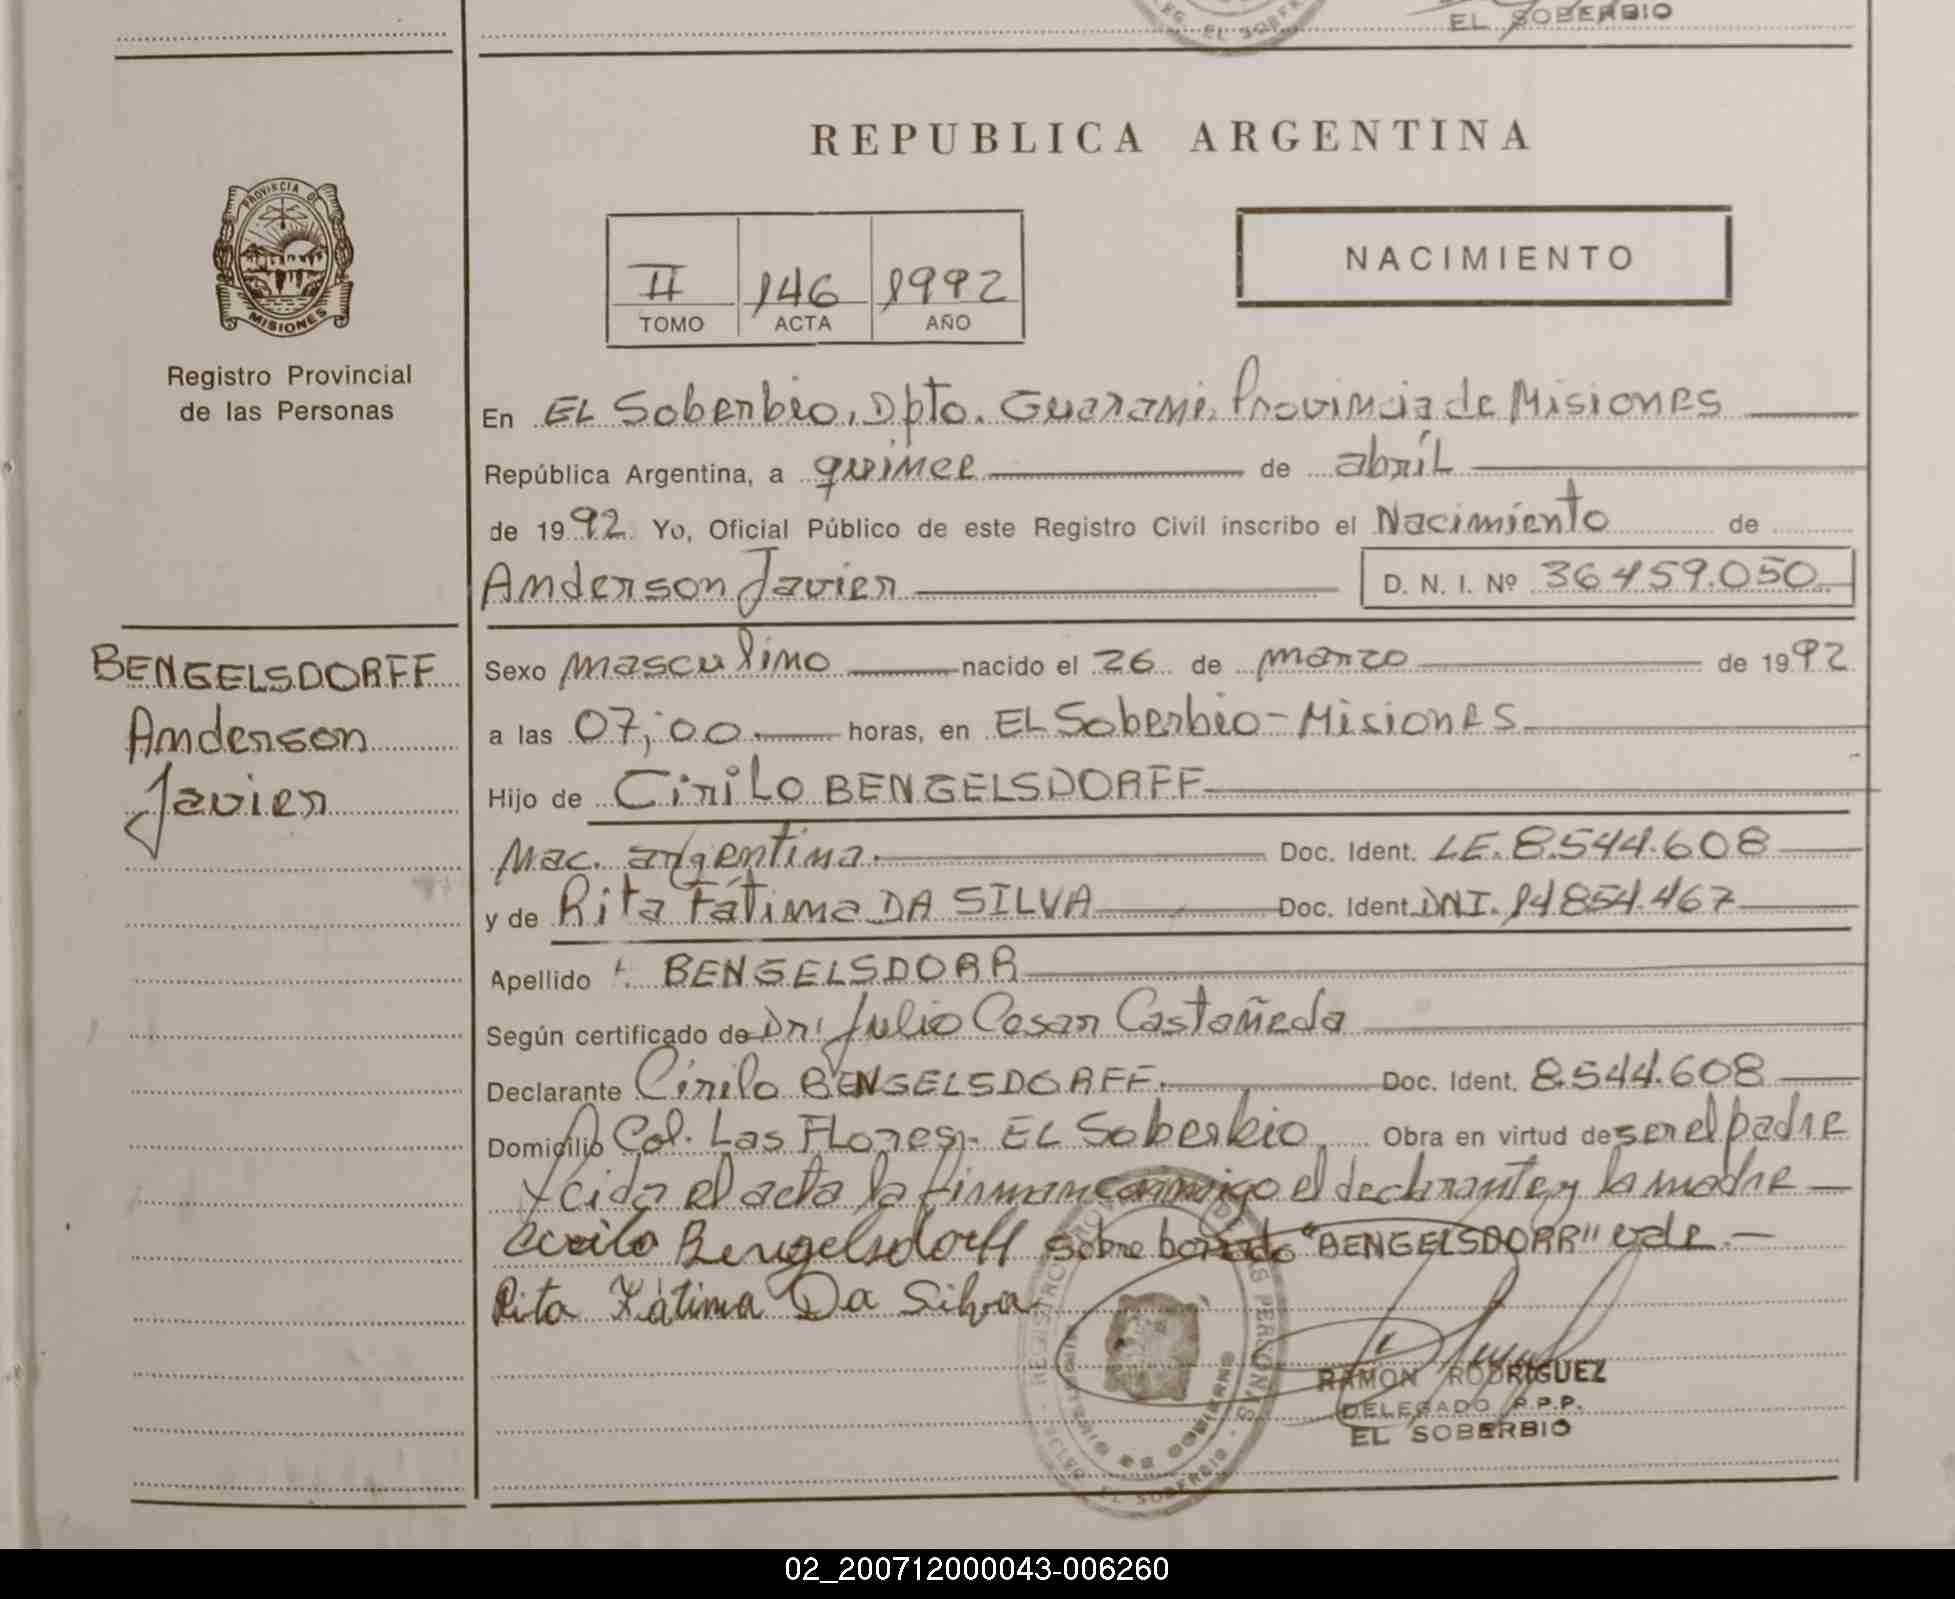 EL SOBERBIO
REG. EL SOBERBIO
REPUBLICA ARGENTINA
PROVINCIA DE
MISIONES
NACIMIENTO
II 146 1992
TOMO ACTA AÑO
Registro Provincial
de las Personas
En EL Soberbio, Dpto. Guarani, Provincia de Misiones
República Argentina, a quince de abríl
de 1992. Yo, Oficial Público de este Registro Civil inscribo el Nacimiento de
Anderson Javier D. N. I. Nº 36459.050
BENGELSDORFF
Anderson
Javier
Sexo masculino nacido el 26 de marzo de 1992
a las 07;00 horas, en EL Soberbio-Misiones
Hijo de CiriLo BENGELSDORFF
Nac. argentina. Doc. Ident. LE. 8.544.608
y de Rita Fátima DA SILVA Doc. Ident. DNI. 14854.467
Apellido BENGELSDORR
Según certificado de Dr. Julio Cesar Castañeda
Declarante Cirilo BENGELSDORFF. Doc. Ident. 8.544.608
Domicilio Col. Las Flores,- EL Soberbio Obra en virtud de ser el padre
Leida el acta la firman conmigo el declarante y la madre
Cirilo Bengelsdorff sobre borrado "BENGELSDORR" vale.-
Rita Fátima Da Silva
REGISTRO PROVINCIAL DE LAS PERSONAS
MINISTERIO DE GOBIERNO
EL SOBERBIO
RAMON RODRIGUEZ
DELEGADO R.P.P.
EL SOBERBIO
02_200712000043-006260